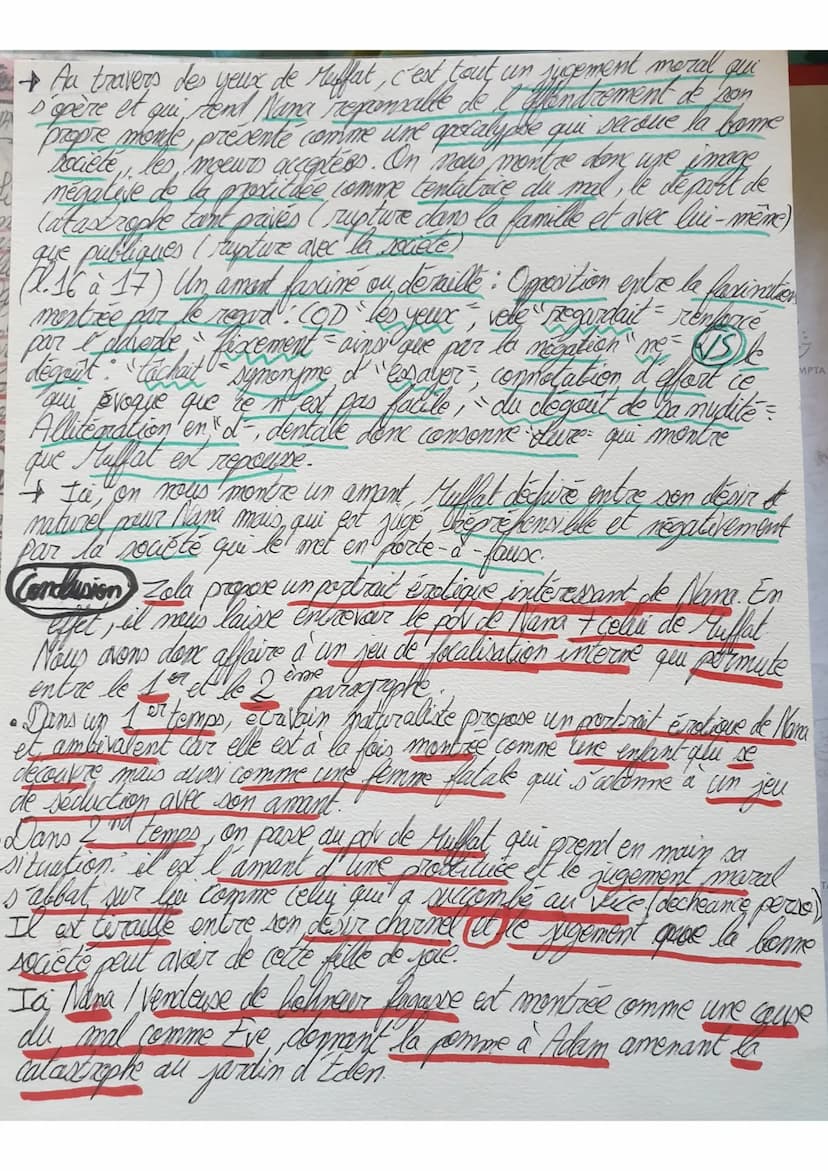 → Au travers des yeux de Muffat, c'est tout un jugement moral qui
s'opère et qui rend Nana reponsable de l'effondrement de son
propre monde, présenté comme une apocalypse qui secoue la bonne
société, les moeurs acceptées. On nous montre donc une image
négative de la prostituée comme tentatrice du mal, le départ de
catastrophe tant privés (rupture dans la famille et avec lui-même)
que publiques (rupture avec la société)
(l.16 à 17) Un amant fasciné ou déraillé : Opposition entre la fascination
montrée par le regard : COD "les yeux", verbe "regardait" renforcé
par l'adverbe "fixement" ainsi que par la négation "ne" VS le
dégoût : "tâchait" synonyme d'"essayer", connotation d'effort ce
qui évoque que ce n'est pas facile, "du dégoût de sa nudité"
Allitégration en "d", dentale donc consonne dure qui montre
que Muffat est repoussé.
→ Ici, on nous montre un amant, Muffat déchiré entre son désir
naturel pour Nana mais qui est jugé répréhensible et négativement
par la société qui le met en porte-à-faux.
Conclusion Zola propose un portrait érotique intéressant de Nana. En
effet, il nous laisse entrevoir le pdv de Nana + celui de Muffat
Nous avons donc affaire à un jeu de focalisation interne qui permute
entre le 1er et le 2ème paragraphe.
• Dans un 1er temps, écrivain naturaliste propose un portrait érotique de Nana
et ambivalent car elle est à la fois montrée comme une enfant qui se
découvre mais aussi comme une femme fatale qui s'adonne à un jeu
de séduction avec son amant.
• Dans 2nd temps, on passe au pdv de Muffat qui prend en main sa
situation : il est l'amant d'une prostituée et le jugement moral
s'abbat sur lui comme celui qui a succombé au vice (déchéance perso)
Il est tiraillé entre son désir charnel et le jugement que la bonne
société peut avoir de cette fille de joie.
Ici Nana / vendeuse de bohneur fugasse est montrée comme une cause
du mal comme Eve, donnant la pomme à Adam amenant la
catastrophe au jardin d'Éden.
MPTA